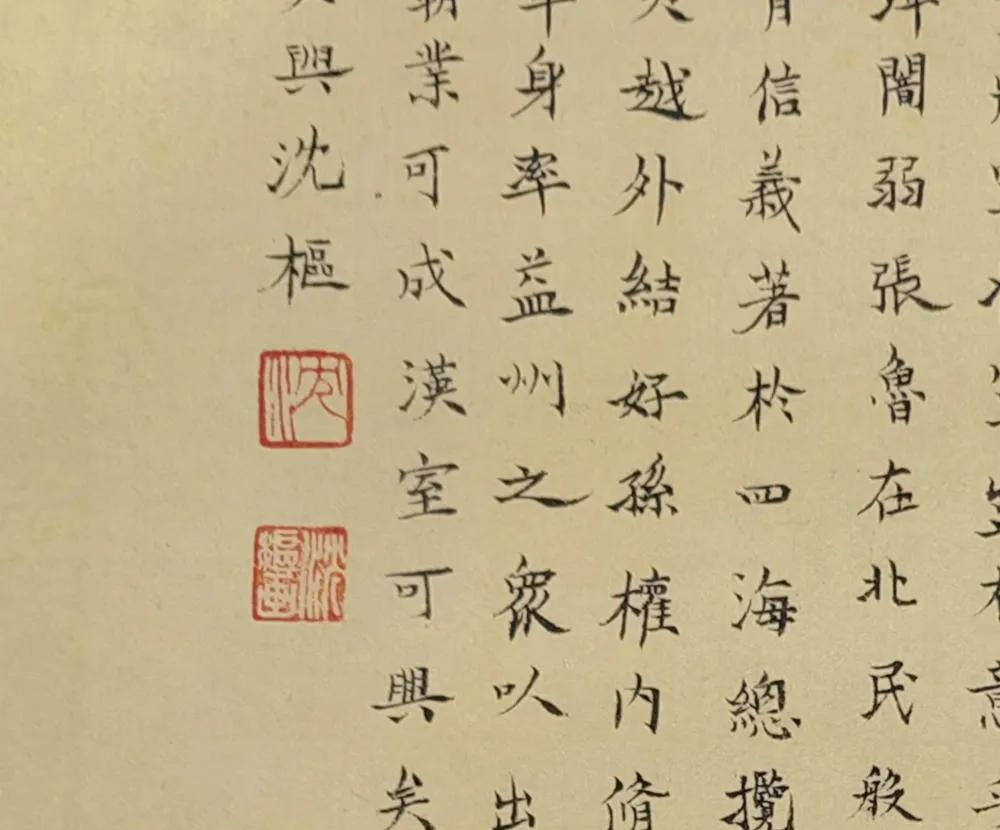 闇弱張魯在北民殷
信義著於四海總攬
越外結好孫權内脩
身率益州之衆以出
業可成漢室可興矣
興沈樞
沈